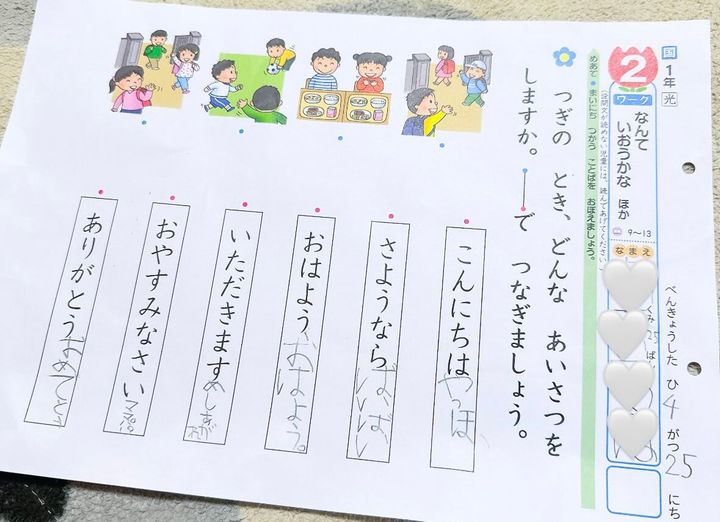 国1年 光
2
ワーク
なんて
いおうかな ほか
9~13
なまえ
くみ
25ばん
べんきょうした ひ 4 がつ 25 にち
めあて ●まいにち つかう ことばを おぼえましょう。
(設問文が読めない児童には、読んであげてください)
つぎの とき、どんな あいさつを
しますか。・―・で つなぎましょう。
こんにちは やっほ
さようなら ばいばい
おはよう おはよう。
いただきます めしあがれ
おやすみなさい
ありがとう